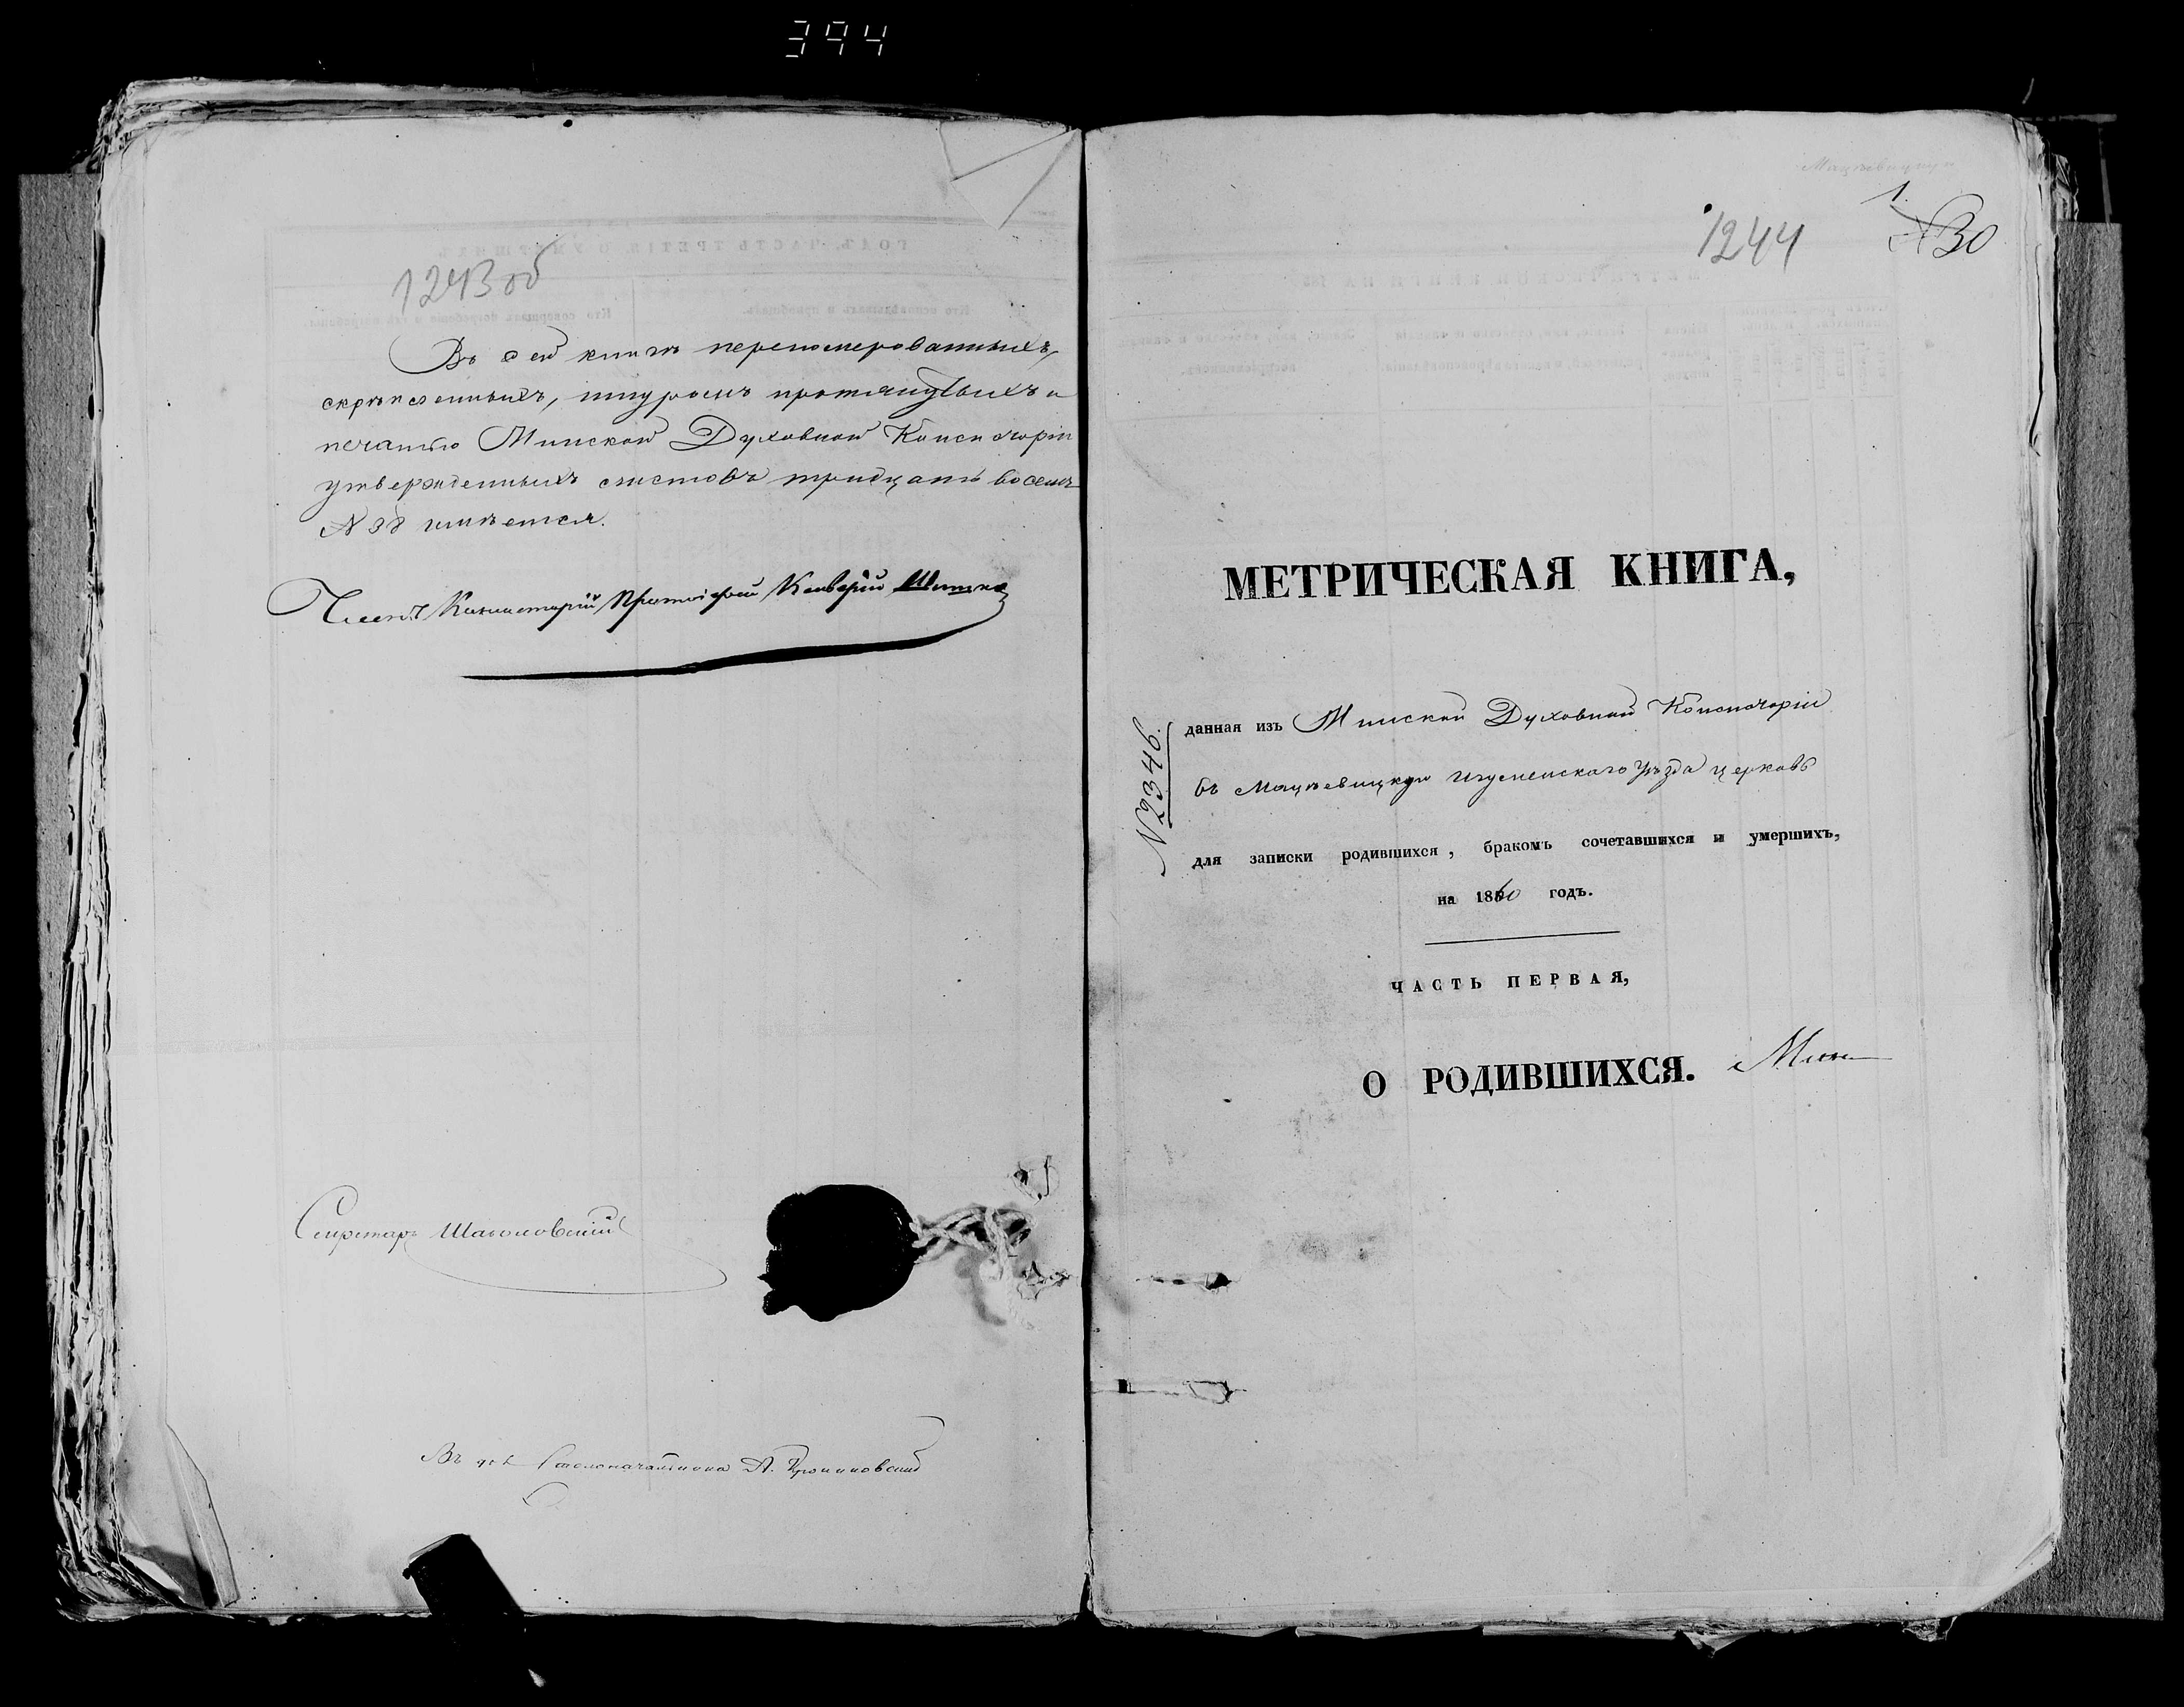 394
1243 об
Въ сей книгѣ перенумерованныхъ,
скрѣпленныхъ, шнуромъ протянутыхъ и
печатью Минской Духовной Консисторіи
утвержденныхъ листовъ тридцать восемь
№ 38 имѣется.
Членъ Консисторіи Протоіерей
Секретарь
1244
1.
30
МЕТРИЧЕСКАЯ КНИГА,
№ 2346.
данная изъ Минской Духовной Консисторіи
въ Мацѣевицкую Игуменскаго Уѣзда церковь
для записки родившихся, бракомъ сочетавшихся и умершихъ,
на 1860 годъ.
ЧАСТЬ ПЕРВАЯ,
О РОДИВШИХСЯ.